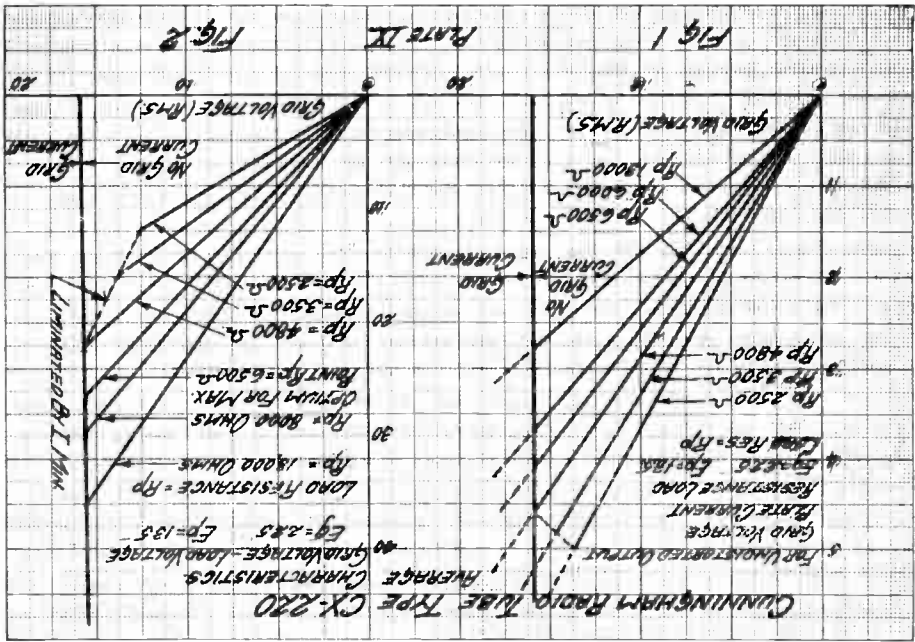 CUNNINGHAM RADIO TUBE TYPE CX-220
AVERAGE
CHARACTERISTICS
GRID VOLTAGE-LOAD VOLTAGE
Eg=22.5 Ep=135
LOAD RESISTANCE=Rp
Rp=13000 OHMS
Rp=8000 OHMS
OPTIUM FOR MAX.
POINT Rp=6500Ω
Rp=4800Ω
Rp=3500Ω
Rp=2500Ω
LIMINATED BY I. MIN
NO GRID
CURRENT
GRID
CURRENT
GRID VOLTAGE (RMS)
40
30
20
10
0
10
20
FOR UNDISTORTED OUTPUT
GRID VOLTAGE
PLATE CURRENT
RESISTANCE LOAD
LOAD RES=Rp
Rp 2500
Rp 3500
Rp 4800
NO
GRID
CURRENT
GRID
CURRENT
Rp 6500Ω
Rp 13000Ω
GRID VOLTAGE (RMS)
5
4
3
0
10
20
FIG. 1
PLATE IX
FIG. 2